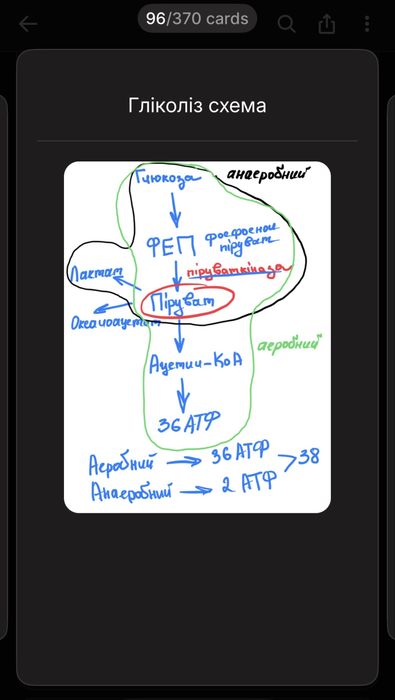 96/370 cards
Гліколіз схема
Глюкоза
анаеробний
ФЕП
фосфоенол
піруват
піруваткіназа
Лактат
Піруват
Оксалоацетат
аеробний
Ацетил-КоА
36 АТФ
Аеробний → 36 АТФ > 38
Анаеробний → 2 АТФ